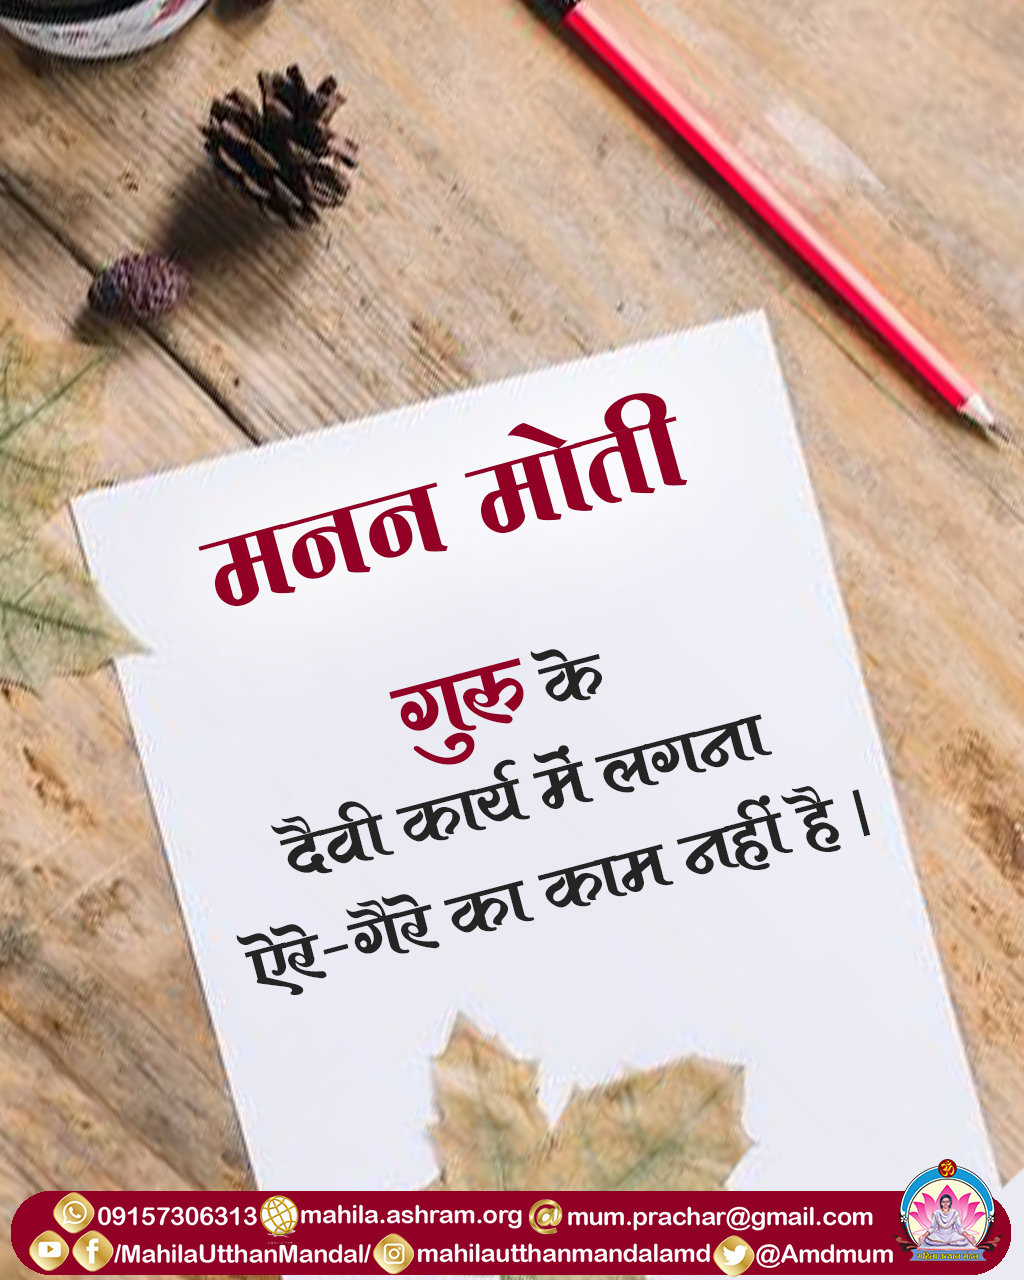 मनन मोती
गुरु के
दैवी कार्य में लगना
ऐरे-गैरे का काम नहीं है।
09157306313 mahila.ashram.org mum.prachar@gmail.com
/MahilaUtthanMandal/ mahilautthanmandalamd @Amdmum
ॐ
महिला उत्थान मंडल